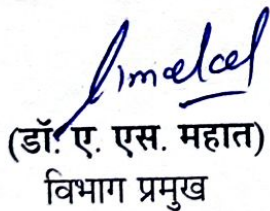 (डॉ. ए. एस. महात)
विभाग प्रमुख